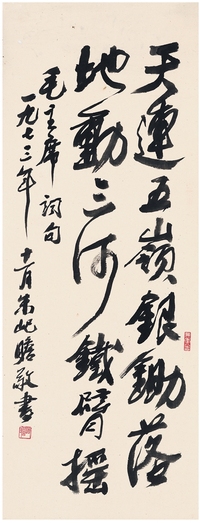 天連五嶺銀鋤落
地動三河鐵臂搖
毛主席詞句
一九七三年十一月朱屺瞻敬書